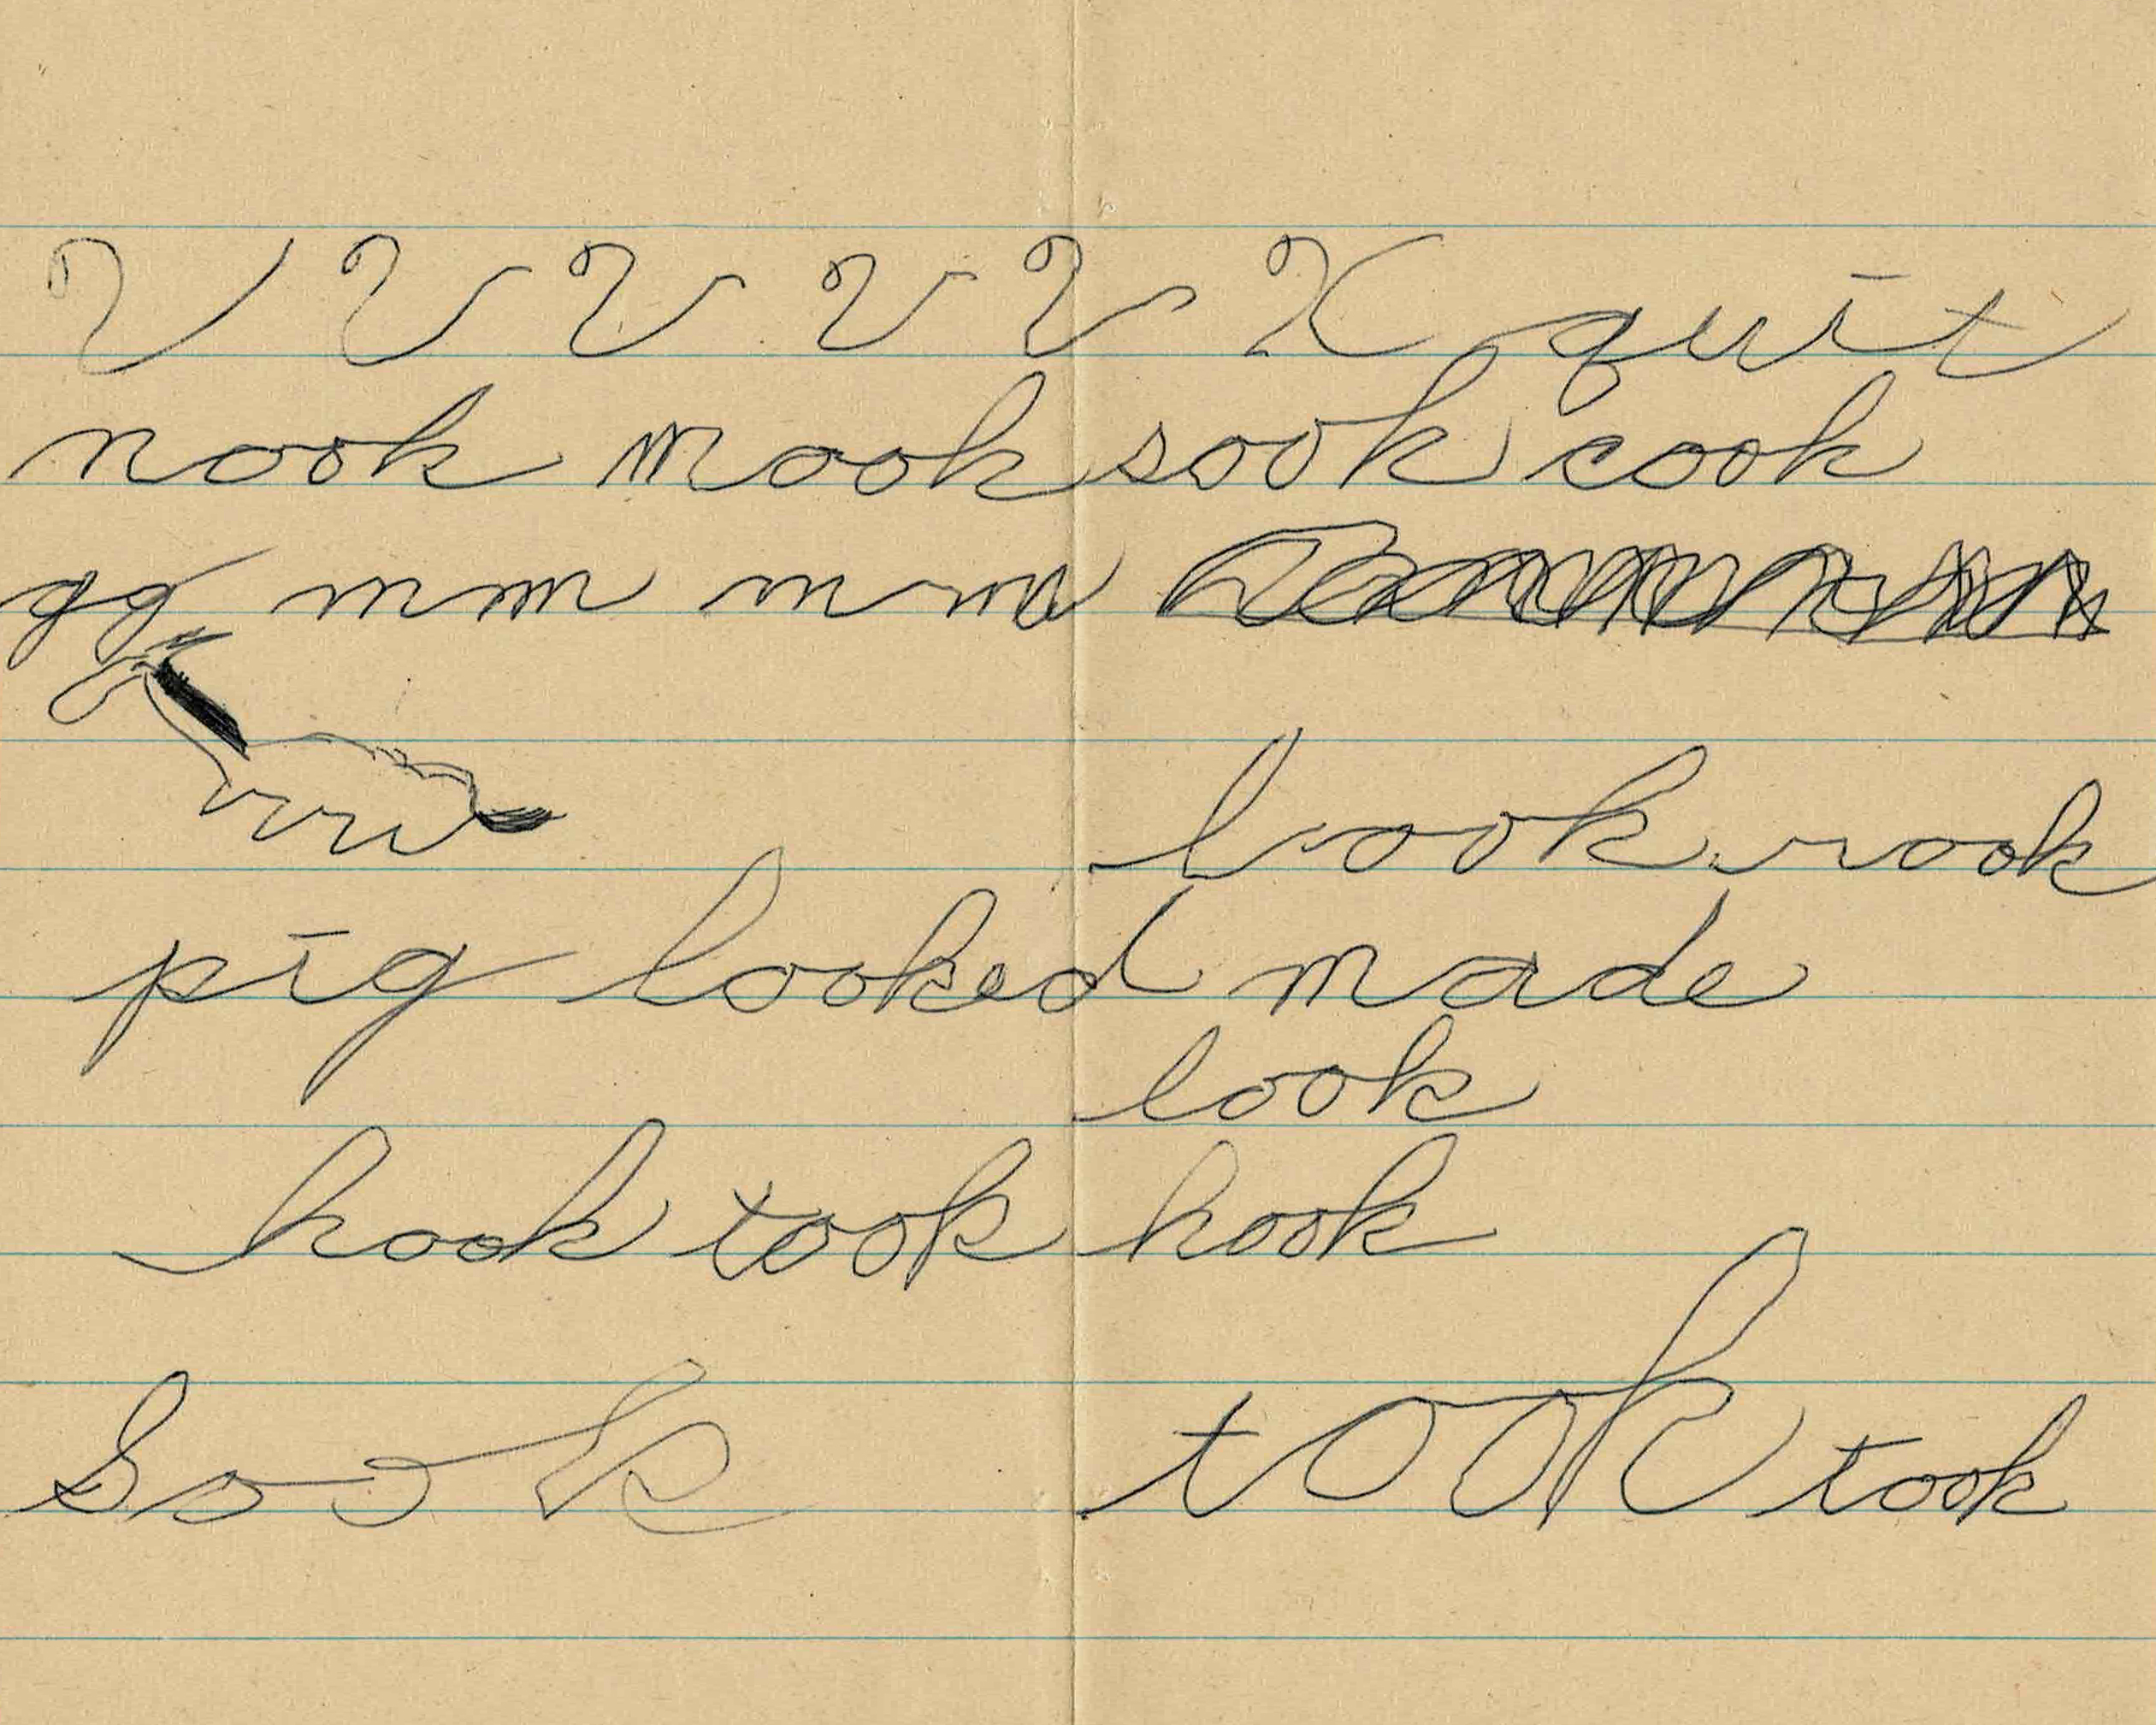 V V V V V X quit
nook mook sook cook
gg mm mm
look rook
pig looked made
look
hook took hook
Sook took took